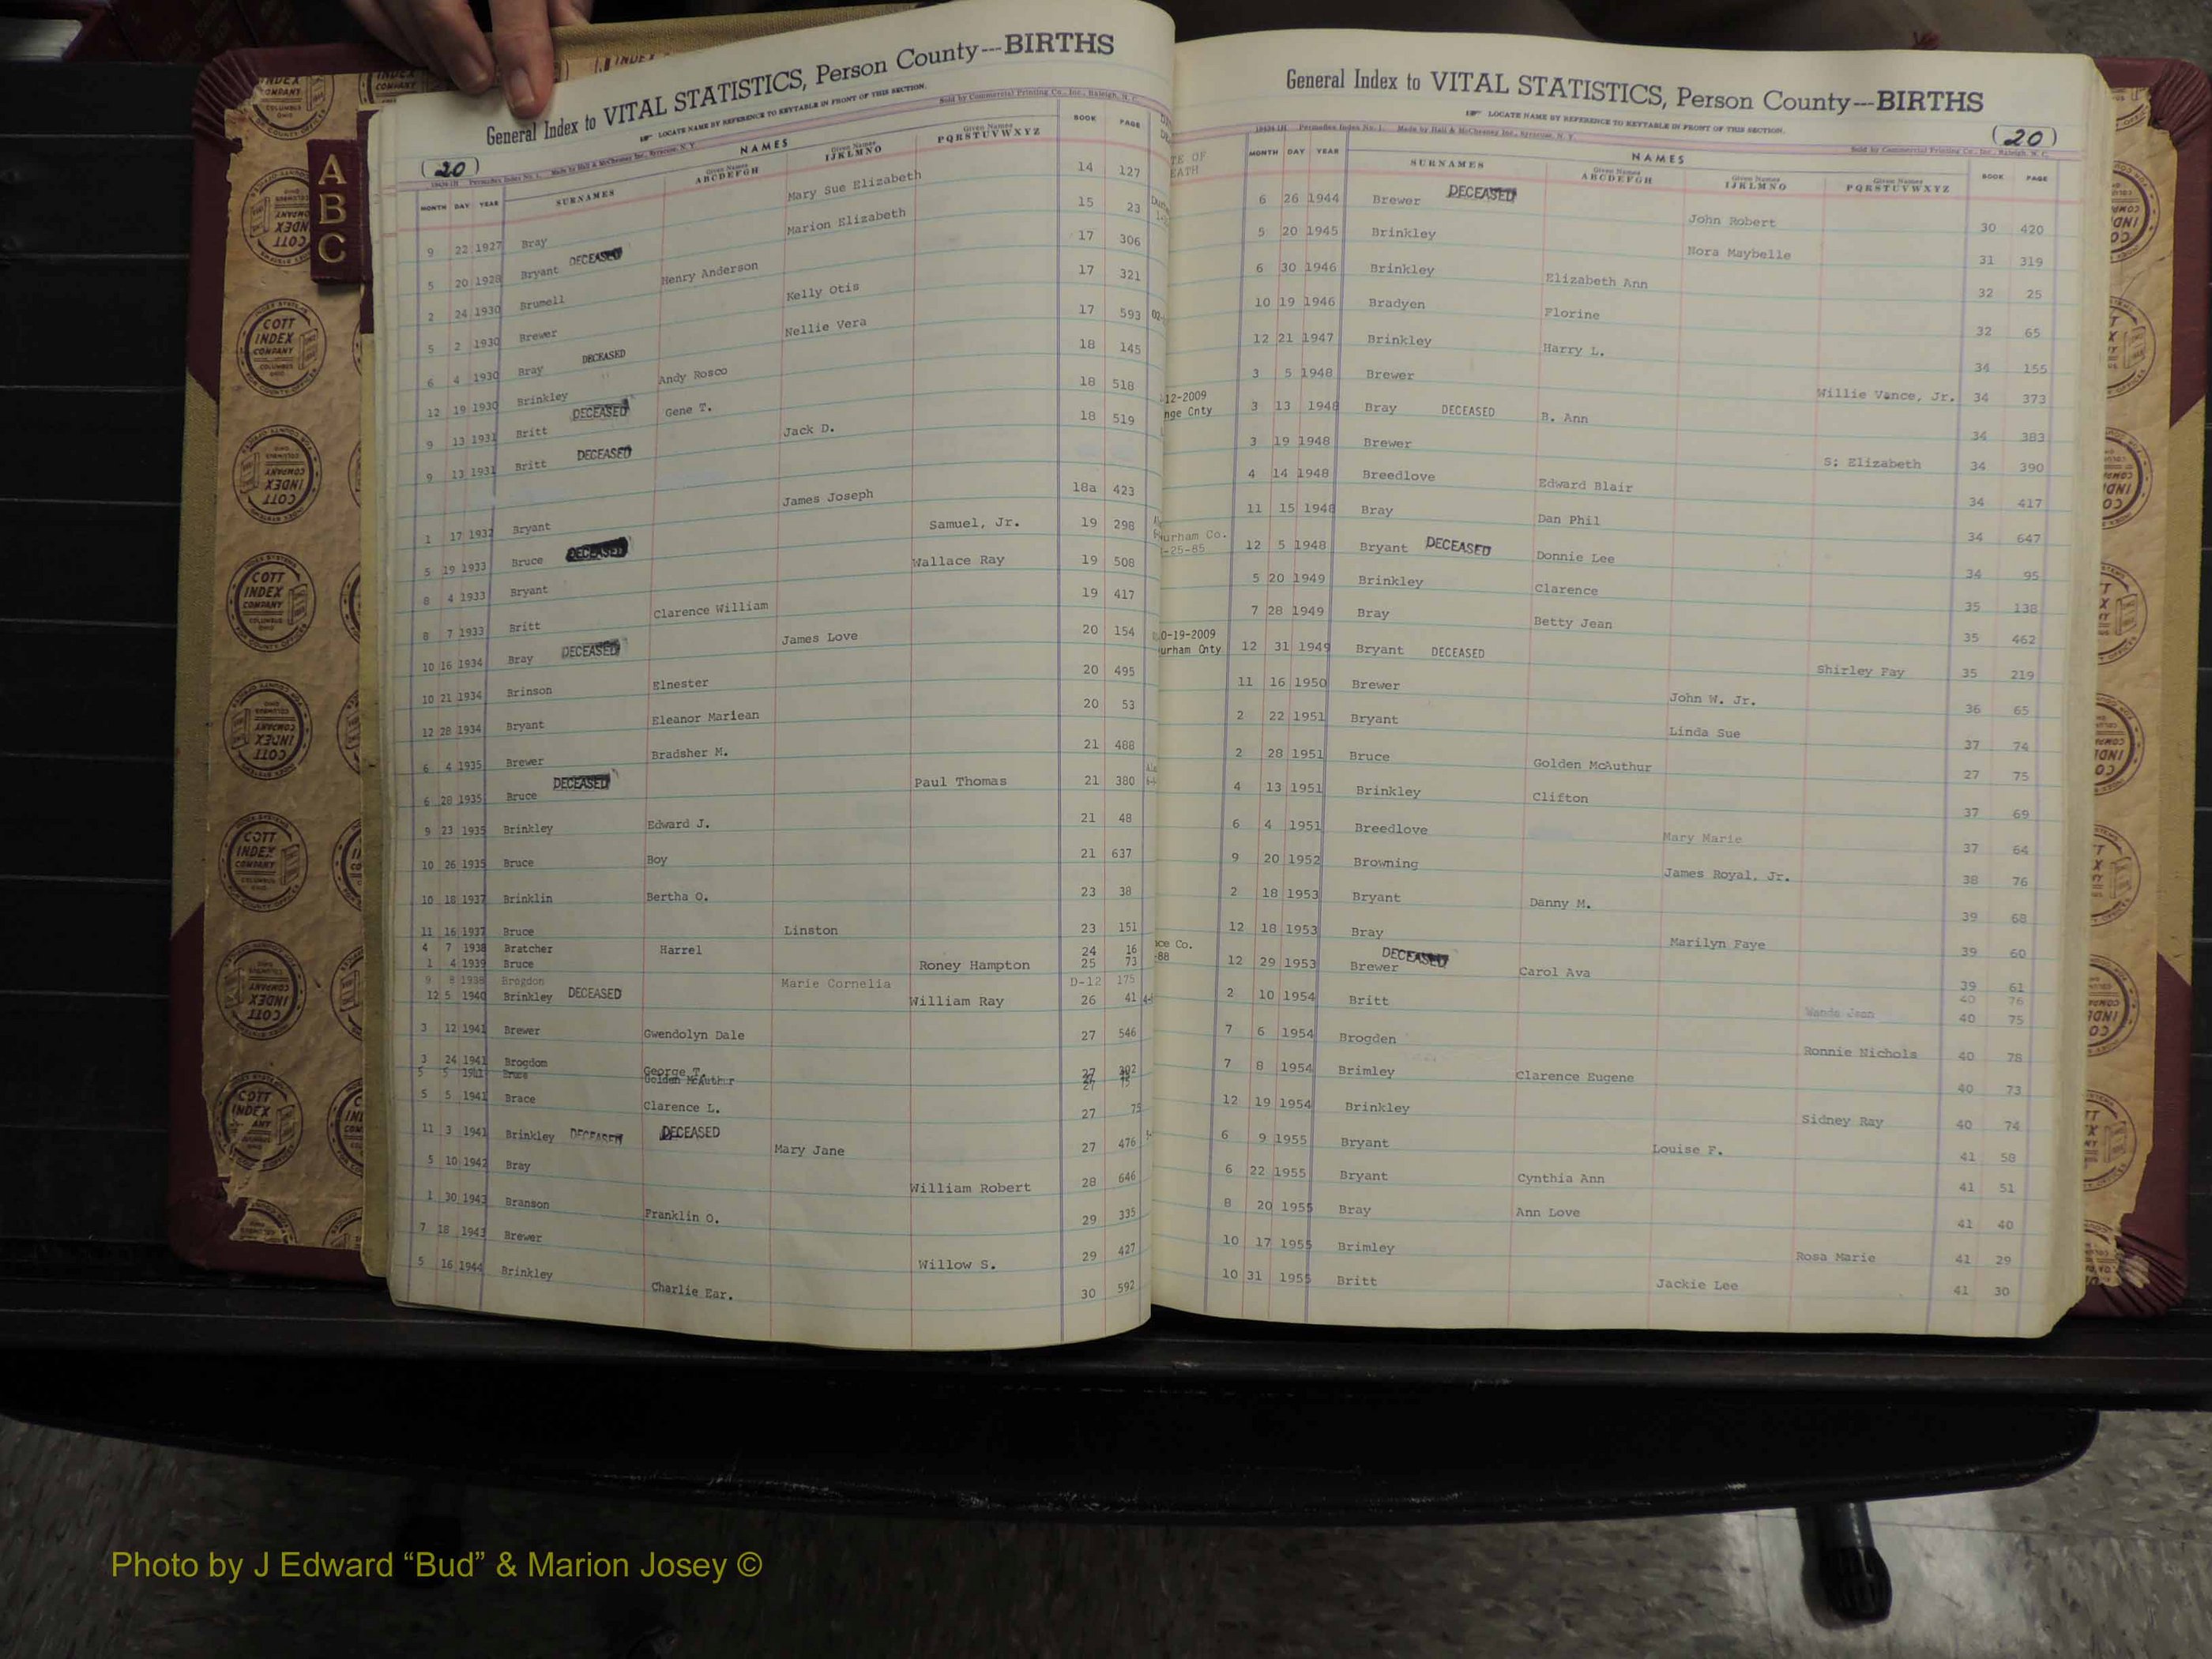 General Index to VITAL STATISTICS, Person County---BIRTHS
LOCATE NAME BY REFERENCE TO KEYTABLE IN FRONT OF THIS SECTION.
Sold by Commercial Printing Co., Inc., Raleigh, N. C.
(20)
MONTH DAY YEAR SURNAMES NAMES Given Names ABCDEFGH Given Names IJKLMNO Given Names PQRSTUVWXYZ BOOK PAGE
9 22 1927 Bray Mary Sue Elizabeth 14 127
5 20 1928 Bryant DECEASED Marion Elizabeth 15 23
2 24 1930 Brumell Henry Anderson 17 306
5 2 1930 Brewer Kelly Otis 17 321
6 4 1930 Bray DECEASED Nellie Vera 17 593
12 19 1930 Brinkley Andy Rosco 18 145
9 13 1931 Britt DECEASED Gene T. 18 518
9 13 1931 Britt DECEASED Jack D. 18 519
1 17 1932 Bryant James Joseph 18a 423
5 19 1933 Bruce DECEASED Samuel, Jr. 19 298
8 4 1933 Bryant Wallace Ray 19 508
8 7 1933 Britt Clarence William 19 417
10 16 1934 Bray DECEASED James Love 20 154
10 21 1934 Brinson Elnester 20 495
12 28 1934 Bryant Eleanor Mariean 20 53
6 4 1935 Brewer Bradsher M. 21 488
6 28 1935 Bruce DECEASED Paul Thomas 21 380
9 23 1935 Brinkley Edward J. 21 48
10 26 1935 Bruce Boy 21 637
10 18 1937 Brinklin Bertha O. 23 38
11 16 1937 Bruce Linston 23 151
4 7 1938 Bratcher Harrel 24 16
1 4 1939 Bruce Roney Hampton 25 73
9 8 1938 Brogdon Marie Cornelia D-12 175
12 5 1940 Brinkley DECEASED William Ray 26 41
3 12 1941 Brewer Gwendolyn Dale 27 546
3 24 1941 Brogdon George T. 27 302
5 5 1941 Bruce Golden McAuthur 27 75
5 5 1941 Brace Clarence L. 27 75
11 3 1941 Brinkley DECEASED DECEASED Mary Jane 27 476
5 10 1942 Bray William Robert 28 646
1 30 1943 Branson Franklin O. 29 335
7 18 1943 Brewer Willow S. 29 427
5 16 1944 Brinkley Charlie Ear. 30 592
General Index to VITAL STATISTICS, Person County---BIRTHS
LOCATE NAME BY REFERENCE TO KEYTABLE IN FRONT OF THIS SECTION.
Made by Hall & McChesney Inc., Syracuse, N. Y.
Sold by Commercial Printing Co., Inc., Raleigh, N. C.
(20)
MONTH DAY YEAR SURNAMES NAMES Given Names ABCDEFGH Given Names IJKLMNO Given Names PQRSTUVWXYZ BOOK PAGE
6 26 1944 Brewer DECEASED John Robert 30 420
5 20 1945 Brinkley Nora Maybelle 31 319
6 30 1946 Brinkley Elizabeth Ann 32 25
10 19 1946 Bradyen Florine 32 65
12 21 1947 Brinkley Harry L. 34 155
3 5 1948 Brewer Willie Vance, Jr. 34 373
12-2009
nge Cnty
3 13 1948 Bray DECEASED B. Ann 34 383
3 19 1948 Brewer S; Elizabeth 34 390
4 14 1948 Breedlove Edward Blair 34 417
11 15 1948 Bray Dan Phil 34 647
urham Co.
-25-85
12 5 1948 Bryant DECEASED Donnie Lee 34 95
5 20 1949 Brinkley Clarence 35 138
7 28 1949 Bray Betty Jean 35 462
0-19-2009
urham Cnty
12 31 1949 Bryant DECEASED Shirley Fay 35 219
11 16 1950 Brewer John W. Jr. 36 65
2 22 1951 Bryant Linda Sue 37 74
2 28 1951 Bruce Golden McAuthur 27 75
4 13 1951 Brinkley Clifton 37 69
6 4 1951 Breedlove Mary Marie 37 64
9 20 1952 Browning James Royal, Jr. 38 76
2 18 1953 Bryant Danny M. 39 68
12 18 1953 Bray Marilyn Faye 39 60
ce Co.
-88
12 29 1953 Brewer DECEASED Carol Ava 39 61
40 76
2 10 1954 Britt Wanda Jean 40 75
7 6 1954 Brogden Ronnie Nichols 40 78
7 8 1954 Brimley Clarence Eugene 40 73
12 19 1954 Brinkley Sidney Ray 40 74
6 9 1955 Bryant Louise F. 41 58
6 22 1955 Bryant Cynthia Ann 41 51
8 20 1955 Bray Ann Love 41 40
10 17 1955 Brimley Rosa Marie 41 29
10 31 1955 Britt Jackie Lee 41 30
A
B
C
COTT
INDEX
COMPANY
COLUMBUS
OHIO
Photo by J Edward “Bud” & Marion Josey ©